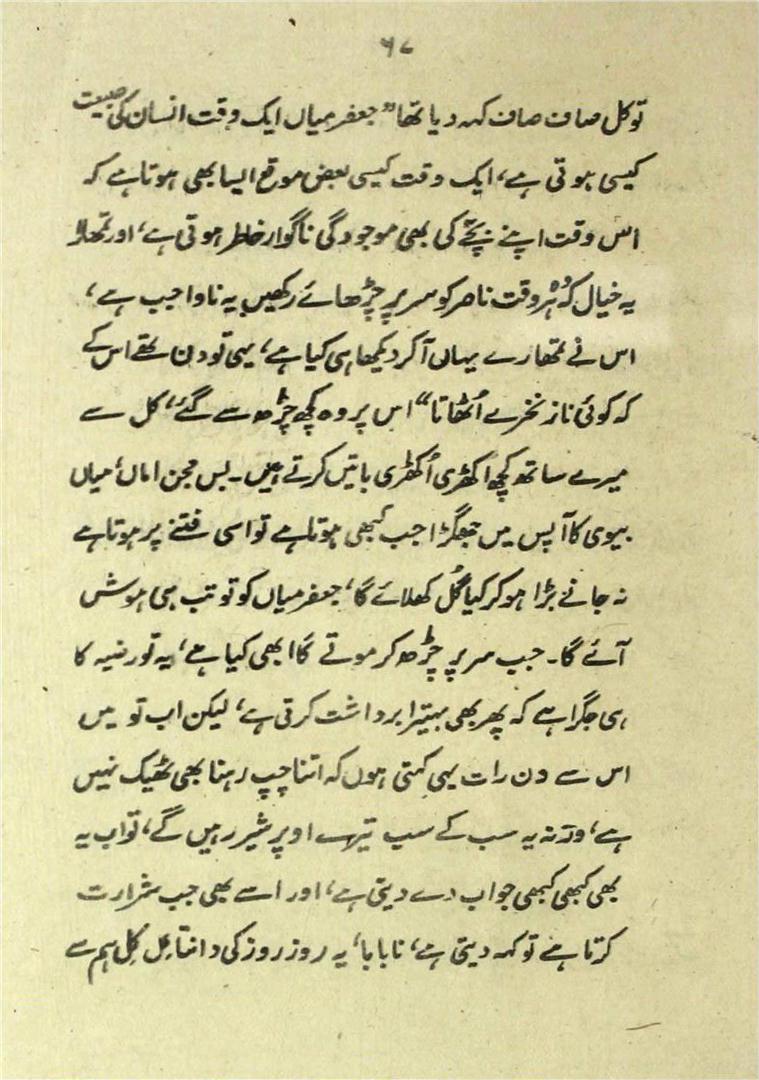 ۶۷
تو کل صاف صاف کہہ دیا تھا" جعفر میاں ایک وقت انسان کی طبیعت
کیسی ہوتی ہے، ایک وقت کیسی بعض موقع ایسا بھی ہوتا ہے کہ
اس وقت اپنے بچّے کی بھی موجودگی ناگوار خاطر ہوتی ہے، اور تمھارا
یہ خیال کہ ہر وقت ناصر کو سر پر چڑھائے رکھیں یہ ناواجب ہے،
اس نے تمھارے یہاں آکر دیکھا ہی کیا ہے، یہی تو دن تھے اس کے
کہ کوئی ناز نخرے اُٹھاتا" اس پر وہ کچھ چڑھ سے گئے، کل سے
میرے ساتھ کچھ اکھڑی اُکھڑی باتیں کرتے ہیں۔ بس مجن اماں، میاں
بیوی کا آپس میں جھگڑا جب کبھی ہوتا ہے تو اسی فتنے پر ہوتا ہے
نہ جانے بڑا ہو کر کیا گُل کھلائے گا، جعفر میاں کو تو تب ہی ہوش
آئے گا۔ جب سر پر چڑھ کر موتے گا ابھی کیا ہے، یہ تو رضیہ کا
ہی جگرا ہے کہ پھر بھی بہتیرا برداشت کرتی ہے، لیکن اب تو میں
اس سے دن رات یہی کہتی ہوں کہ اتنا چپ رہنا بھی ٹھیک نہیں
ہے، ورنہ یہ سب کے سب تیرے اوپر شیر رہیں گے، تو اب یہ
بھی کبھی کبھی جواب دے دیتی ہے، اور اسے بھی جب شرارت
کرتا ہے تو کہہ دیتی ہے، نا بابا، یہ روز روز کی دانتا کِل کِل ہم سے